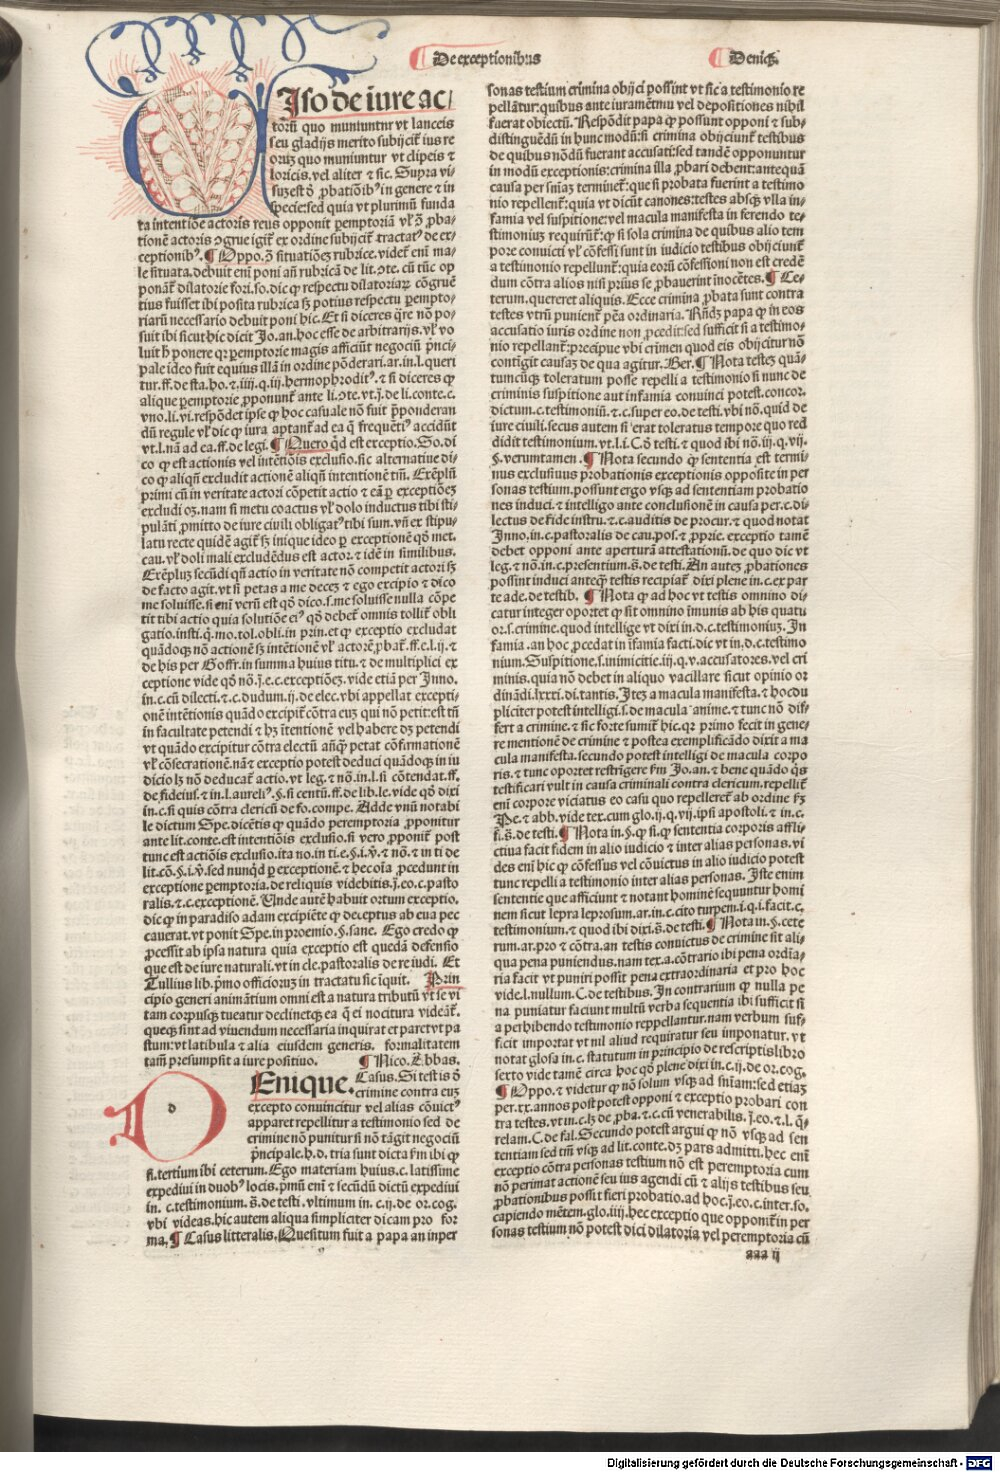 De exceptionibus
Deniqꝫ.
Iso de iure ac/
torū quo muniuntur vt lanceis
seu gladijs merito subijcit̄ ius re
orūꝫ quo muniuntur vt clipeis ⁊
loricis. vel aliter ⁊ sic. Supra vi/
suꝫ est ꝺ̄ ꝓbatiōibꝰ in genere ⁊ in
specie: sed quia vt plurimū funda
ta intentiōe actoris reus opponit ꝑemptoriā vl̓ ꝯ̄ ꝓba/
tionē actoris ꝯgrue igit̄ ex ordine subijcit̄ tractatꝰ de ex/
ceptionibꝰ. ¶ Oppo. ꝯ̄ situatiōeꝫ rubrice. videt̄ eni̅ ma/
le situata. debuit eni̅ poni an̄ rubricā de lit. ꝯte. cū tūc op
ponāt̄ dilatorie fori. so. dic ꝙ respectu dilatoriaꝝ cōgruē
tius fuisset ibi posita rubrica sꝫ potius respectu ꝑempto/
riarū necessario debuit poni hic. Et si diceres q̄re nō po/
suit ibi sicut hic dicit Jo. an. hoc esse de arbitrarijs. vl̓ vo
luit h̄ ponere qꝛ ꝑemptorie magis afficiūt negociū p̄nci/
pale ideo fuit equius illā in ordine pōderari. ar. in. l. queri
tur. ff. de sta. ho. ⁊ .iiij. q. iij. hermophroditꝰ. ⁊ si diceres ꝙ
alique ꝑemptorie ꝓponunt̄ ante li. ꝯte. vt. j. de li. conte. c.
vno. li. vi. respōdet ipse ꝙ hoc casuale nō fuit p̄ponderan
dū regule vl̓ dic ꝙ iura aptant̄ ad ea q̄ frequētiꝰ accidūt
vt. l. nā ad ea. ff. de legi. ¶ Quero q̄d est exceptio. So. di
co ꝙ est actionis vel intētiōis exclusio. sic alternatiue di/
co ꝙ aliqn̄ excludit actionē aliqn̄ intentionē tm̄. Exēplū
primi cū in veritate actori cōpetit actio ⁊ eā ꝑ exceptiōeꝫ
excludi oꝫ. nam si metu coactus vl̓ dolo inductus tibi sti/
pulāti ꝓmitto de iure ciuili obligatꝰ tibi sum. vn̄ ex stipu/
latu recte quidē agit̄ sꝫ inique ideo ꝑ exceptionē qꝺ̄ met.
cau. vl̓ doli mali excludēdus est actor. ⁊ idē in similibus.
Exēpluꝫ secūdi qn̄ actio in veritate nō competit actori sꝫ
de facto agit. vt si petas a me deceꝫ ⁊ ego excipio ⁊ dico
me soluisse. si em̄ verū est qꝺ̄ dico. s. me soluisse nulla cōpe
tit tibi actio quia solutiōe eiꝰ qꝺ̄ debet̄ omnis tollit̄ obli
gatio. insti. q̄. mo. tol. obli. in prin. et ꝙ exceptio excludat
quādoqꝫ nō actionē sꝫ intētionē vl̓ actorē ꝓbat̄. ff. e. l. ij. ⁊
de his per Goffr. in summa huius titu. ⁊ de multiplici ex
ceptione vide qꝺ̄ nō. j. e. c. exceptiōeꝫ. vide etiā per Inno.
in. c. cū dilecti. ⁊ c. dudum. ij. de elec. vbi appellat excepti/
onē intētionis quādo excipit̄ cōtra euꝫ qui nō petit: est tn̄
in facultate petendi ⁊ hꝫ itentionē vel habere dꝫ petendi
vt quādo excipitur cōtra electū añq̄ꝫ petat cōfirmationē
vl̓ cōsecrationē. nā ⁊ exceptio potest deduci quādoqꝫ in iu
dicio lꝫ nō deducat̄ actio. vt leg. ⁊ nō. in. l. si cōtendat. ff.
de fideius. ⁊ in. l. aureliꝰ. §. si centū. ff. de lib. le. vide qꝺ̄ dixi
in. c. si quis contra clericū de fo. compe. Adde vnū notabi
le dictum Spe. dicētis ꝙ quādo peremptoria ꝓponitur
ante lit. conte. est intentiōis exclusio. si vero ꝓponit̄ post
tunc est actiōis exclusio. ita no. in ti. e. §. i. v̄. ⁊ nō. ⁊ in ti de
lit. cō. §. i. v̄. sed nunq̄d ꝑ exceptionē. ⁊ hec oīa ꝓcedunt in
exceptione ꝑemptoria. de reliquis videbitis. j. eo. c. pasto
ralis. ⁊ c. exceptionē. Unde autē habuit ortum exceptio.
dic ꝙ in paradiso adam excipiēte ꝙ deceptus ab eua pec
cauerat. vt ponit Spe. in proemio. §. sane. Ego credo ꝙ
ꝓcessit ab ipsa natura quia exceptio est quedā defensio
que est de iure naturali. vt in cle. pastoralis de re iudi. Et
Tullius lib. p̄mo officioruꝫ in tractatu sic īquit. Prin
cipio generi animantium omni est a natura tributū vt se vi
tam corpusqꝫ tueatur declinetqꝫ ea q̄ ei nocitura videāt̄.
queqꝫ sunt ad viuendum necessaria inquirat et paret vt pa
stum: vt latibula ⁊ alia eiusdem generis. formalitatem
tam̄ presumpsit a iure positiuo. ¶ Nico. Abbas.
d
Enique. Casus. Si testis ꝺ̄
crimine contra euꝫ
excepto conuincitur vel alias cōuictꝰ
apparet repellitur a testimonio sed de
crimine nō punitur si nō tāgit negociū
p̄ncipale. h. d. tria sunt dicta fm̄ ibi ꝙ
si. tertium ibi ceterum. Ego materiam huius. c. latissime
expediui in duobꝰ locis. pmū eni̅ ⁊ secūdū dictū expediui
in. c. testimonium. s̄. de testi. vltimum in. c. ij. de or. cog.
vbi videas. hic autem aliqua simpliciter dicam pro for
ma. ¶ Casus litteralis. Quesitum fuit a papa an in per
sonas testium crimina obijci possint vt sic a testimonio re
pellātur: quibus ante iuramētmu vel depositiones nihil
fuerat obiectū. Respōdit papa ꝙ possunt opponi ⁊ sub/
distinguēdū in hunc modū: si crimina obijciunt̄ testibus
de quibus nōdū fuerant accusati: sed tandē opponuntur
in modū exceptionis: crimina illa ꝓbari debent: antequā
causa per sn̄iaꝫ terminet̄: que si probata fuerint a testimo
nio repellent̄: quia vt dicūt canones: testes absqꝫ vlla in/
famia vel suspitione: vel macula manifesta in ferendo te/
stimoniuꝫ requirūt̄: ꝙ si sola crimina de quibus alio tem
pore conuicti vl̓ cōfessi sunt in iudicio testibus obijciunt̄
a testimonio repellunt̄: quia eorū cōfessioni non est credē
dum cōtra alios nisi prius se ꝓbauerint inocētes. ¶ Ce/
terum. quereret aliquis. Ecce crimina ꝓbata sunt contra
testes vtrū punient̄ pēa ordinaria. Rn̄dꝫ papa ꝙ in eos
accusatio iuris ordine non ꝓcedit: sed sufficit si a testimo/
nio repellant̄: precipue vbi crimen quod eis obijcitur nō
contigit causaꝫ de qua agitur. Ber. ¶ Nota testeꝫ quā/
tumcūqꝫ toleratum posse repelli a testimonio si nunc de
criminis suspitione aut infamia conuinci potest. concor.
dictum. c. testimoniū. ⁊ c. super eo. de testi. vbi nō. quid de
iure ciuili. secus autem si erat toleratus tempore quo red
didit testimonium. vt. l. i. C. ꝺ̄ testi. ⁊ quod ibi nō. iij. q. vij.
§. verumtamen. ¶ Nota secundo ꝙ sententia est termi/
nus exclusiuus probationis exceptionis opposite in per
sonas testium. possunt ergo vsqꝫ ad sententiam probatio
nes induci. ⁊ intelligo ante conclusionē in causa per. c. di/
lectus de fide instru. ⁊ c. auditis de procur. ⁊ quod notat
Inno. in. c. pastoralis de cau. pos. ⁊ ꝓprie. exceptio tamē
debet opponi ante aperturā attestationū. de quo dic vt
leg. ⁊ nō. in. c. presentium. s̄. de testi. An auteꝫ ꝓbationes
possint induci anteq̄ꝫ testis recipiat̄ dixi plene in. c. ex par
te ade. de testib. ¶ Nota ꝙ ad hoc vt testis omnino di/
catur integer oportet ꝙ sit omnino īmunis ab his quatu
or. s. crimine. quod intellige vt dixi in. d. c. testimoniuꝫ. In
famia. an hoc ꝓcedat in īsamia facti. dic vt in. d. c. testimo
nium. Suspitione. s. inimicitie. iij. q. v. accusatores. vel cri
minis. quia nō debet in aliquo vacillare sicut opinio or
dināndi. lxxxi. di. tantis. Iteꝫ a macula manifesta. ⁊ hoc du
pliciter potest intelligi. s. de macula anime. ⁊ tunc nō dif/
fert a crimine. ⁊ sic forte sumit̄ hic. qꝛ primo fecit in gene/
re mentionē de crimine ⁊ postea exemplificādo dixit a ma
cula manifesta. secundo potest intelligi de macula corpo
ris. ⁊ tunc oportet restrīgere fm̄ Jo. an. ⁊ bene quādo q̄s
testificari vult in causa criminali contra clericum. repellit̄
eni̅ corpore viciatus eo casu quo repelleret̄ ab ordine fꝫ
Pe. ⁊ abb. vide tex. cum glo. ij. q. vij. ipsi apostoli. ⁊ in. c.
f̄. s̄. de testi. ¶ Nota in. §. ꝙ si. ꝙ sententia corporis affli/
ctiua facit fidem in alio iudicio ⁊ inter alias personas. vi
des eni̅ hic ꝙ cōfessus vel cōuictus in alio iudicio potest
tunc repelli a testimonio inter alias personas. Iste enim
sententie que afficiunt ⁊ notant hominē sequuntur homi
nem sicut lepra leprosum. ar. in. c. cito turpem. i. q. i. facit. c.
testimonium. ⁊ quod ibi dixi. s̄. de testi. ¶ Nota in. §. cete
rum. ar. pro ⁊ cōtra. an testis conuictus de crimine sit ali/
qua pena puniendus. nam tex. a. cōtrario ibi pena ordīa/
ria facit vt puniri possit pena extraordinaria et pro hoc
vide. l. nullum. C. de testibus. In contrarium ꝙ nulla pe
na puniatur faciunt multū verba sequentia ibi sufficit si
a perhibendo testimonio reppellantur. nam verbum suf/
ficit importat vt nil aliud requiratur seu imponatur. vt
notat glosa in. c. statutum in principio de rescriptis libro
sexto vide tamē circa hoc qꝺ̄ plene dixi in. c. ij. de or. cog.
¶ Oppo. ⁊ videtur ꝙ nō solum vsqꝫ ad sn̄iam: sed etiaꝫ
per. xx. annos post potest opponi ⁊ exceptio probari con
tra testes. vt in. c. lꝫ de ꝓba. ⁊ c. cū venerabilis. j. eo. ⁊ l. q̄.
relam. C. de fal. Secundo potest argui ꝙ nō vsqꝫ ad sen
tentiam sed tm̄ vsqꝫ ad lit. conte. dꝫ pars admitti. hec eni̅
exceptio cōtra personas testium nō est peremptoria cum
nō perimat actionē seu ius agendi cū ⁊ alijs testibus seu
ꝓbationibus possit fieri probatio. ad hoc. j. eo. c. inter. so.
capiendo mētem. glo. iiij. hec exceptio que opponit̄ in per
sonas testium nō potest dici dilatoria vel peremptoria cū
aaa ij
Digitalisierung gefördert durch die Deutsche Forschungsgemeinschaft - DFG